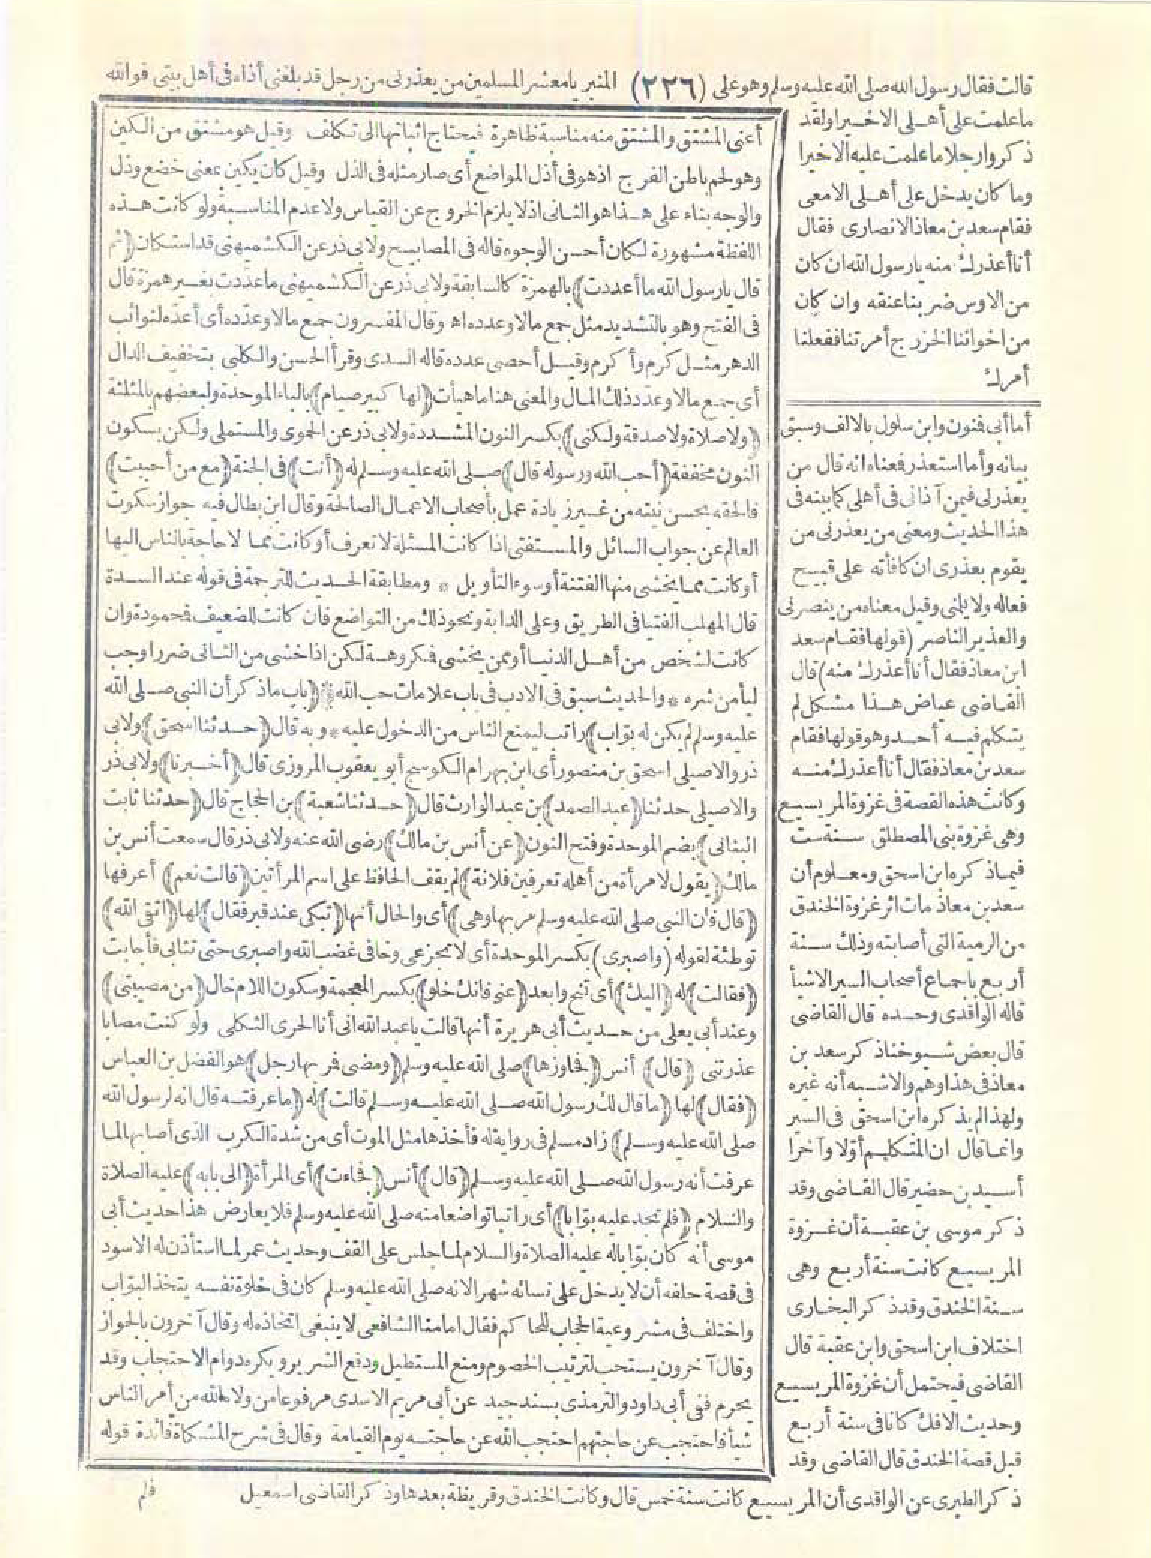 قالت فقال رسول الله صلى الله عليه وسلم وهو على (٢٢٦) المنبر يا معشر المسلمين من يعذرنى من رجل قد بلغنى أذاه فى أهل بيتى فوالله
ما علمت على أهلى الا خيرا ولقد
ذكروا رجلا ما علمت عليه الا خيرا
وما كان يدخل على أهلى الا معى
فقام سعد بن معاذ الانصارى فقال
أنا أعذرك منه يا رسول الله ان كان
من الاوس ضربنا عنقه وان كان
من اخواننا الخزرج أمرتنا ففعلنا
أمرك
أما أبى فنون وابن سلول بالالف وسبق
بيانه وأما استعذر فعناه انه قال من
يعذرنى فيمن آذانى فى أهلى كما بينه فى
هذا الحديث ومعنى من يعذرنى من
يقوم بعذرى ان كافأته على قبيح
فعاله ولا يلمنى وقيل معناه من ينصرنى
والعذير الناصر (قولها فقام سعد
ابن معاذ فقال أنا أعذرك منه) قال
القاضى عياض هذا مشكل لم
يتكلم فيه أحد وهو قولها فقام
سعد بن معاذ فقال أنا أعذرك منه
وكانت هذه القصة فى غزوة المريسيع
وهى غزوة بنى المصطلق سنة ست
فيما ذكره ابن اسحق ومعلوم أن
سعد بن معاذ مات اثر غزوة الخندق
من الرمية التى أصابته وذلك سنة
أربع باجماع أصحاب السير الا شيأ
قاله الواقدى وحده قال القاضى
قال بعض شيوخنا ذكر سعد بن
معاذ فى هذا وهم والاشبه أنه غيره
ولهذا لم يذكره ابن اسحق فى السير
وانما قال ان المتكلم أولا وآخرا
أسيد بن حضير قال القاضى وقد
ذكر موسى بن عقبة أن غزوة
المريسيع كانت سنة أربع وهى
سنة الخندق وقد ذكر البخارى
اختلاف ابن اسحق وابن عقبة قال
القاضى فيحتمل أن غزوة المريسيع
وحديث الافك كانا فى سنة أربع
قبل قصة الخندق قال القاضى وقد
ذكر الطبرى عن الواقدى أن المريسيع كانت سنة خمس قال وكانت الخندق وقريظة بعدها وذكر القاضى اسمعيل
أعنى المشتق والمشتق منه مناسبة ظاهرة فيحتاج اثباتها الى تكلف وقيل هو مشتق من الكين
وهو لحم باطن الفرج اذ هو فى أذل المواضع أى صار مثله فى الذل وقيل كان يكين بمعنى خضع وذل
والوجه بناء على هذا هو الثانى اذ لا يلزم الخروج عن القياس ولا عدم المناسبة ولو كانت هذه
اللفظة مشهورة لكان أحسن الوجوه قاله فى المصابيح ولابى ذر عن الكشميهنى قد استكان (ثم
قال يا رسول الله ما أعددت) بالهمزة كالسابقة ولابى ذر عن الكشميهنى ما عددت بغير همزة قال
فى الفتح وهو بالتشديد مثل جمع مالا وعدده اه وقال المفسرون جمع مالا وعدده أى أعده لنوائب
الدهر مثل كرم وأكرم وقيل أحصى عدده قاله السدى وقرأ الحسن والكلبى بتخفيف الدال
أى جمع مالا وعدد ذلك المال والمعنى هنا ما هيأت (لها كبير صيام) بالباء الموحدة ولبعضهم بالمثلثة
(ولا صلاة ولا صدقة ولكنى) بكسر النون المشددة ولابى ذر عن الحموى والمستملى ولكن بسكون
النون مخففة (أحب الله ورسوله قال) صلى الله عليه وسلم له (أنت) فى الجنة (مع من أحببت)
فالحقه بحسن نيته من غير زيادة عمل بأصحاب الاعمال الصالحة وقال ابن بطال فيه جواز سكوت
العالم عن جواب السائل والمستفتى اذا كانت المسئلة لا تعرف أو كانت مما لا حاجة بالناس اليها
أو كانت مما يخشى منها الفتنة أو سوء التأويل * ومطابقة الحديث للترجمة فى قوله عند السدة
قال المهلب الفتيا فى الطريق وعلى الدابة ونحو ذلك من التواضع فان كانت للضعيف فمحمودة وان
كانت لشخص من أهل الدنيا أو ممن يخشى فمكروهة لكن اذا خشى من الثانى ضررا وجب
ليأمن شره * والحديث سبق فى الادب فى باب علامات حب الله (باب ما ذكر أن النبى صلى الله
عليه وسلم لم يكن له بواب) راتب ليمنع الناس من الدخول عليه * وبه قال (حدثنا اسحق) ولابى
ذر والاصيلى اسحق بن منصور أى ابن بهرام الكوسج أبو يعقوب المروزى قال (أخبرنا) ولابى ذر
والاصيلى حدثنا (عبد الصمد) بن عبد الوارث قال (حدثنا شعبة) بن الحجاج قال (حدثنا ثابت
البنانى) بضم الموحدة وفتح النون (عن أنس بن مالك) رضى الله عنه ولابى ذر قال سمعت أنس بن
مالك (يقول لامرأة من أهله تعرفين فلانة) لم يقف الحافظ على اسم المرأتين (قالت نعم) أعرفها
(قال فان النبى صلى الله عليه وسلم مر بها وهى) أى والحال أنها (تبكى عند قبر فقال) لها (اتقى الله)
توطئة لقوله (واصبرى) بكسر الموحدة أى لا تجزعى وخافى غضب الله واصبرى حتى تثابى فأجابت
(فقالت) له (اليك) أى تنح وابعد (عنى فانك خلو) بكسر المعجمة وسكون اللام خال (من مصيبتى)
وعند أبى يعلى من حديث أبى هريرة أنها قالت يا عبد الله انى أنا الحرى الثكلى ولو كنت مصابا
عذرتنى (قال) أنس (فجاوزها) صلى الله عليه وسلم (ومضى فمر بها رجل) هو الفضل بن العباس
(فقال) لها (ما قال لك رسول الله صلى الله عليه وسلم قالت) له (ما عرفته قال انه لرسول الله
صلى الله عليه وسلم) زاد مسلم فى رواية له فأخذها مثل الموت أى من شدة الكرب الذى أصابها لما
عرفت أنه رسول الله صلى الله عليه وسلم (قال) أنس (فجاءت) أى المرأة (الى بابه) عليه الصلاة
والسلام (فلم تجد عليه بوابا) أى راتبا تواضعا منه صلى الله عليه وسلم فلا يعارض هذا حديث أبى
موسى أنه كان بوابا له عليه الصلاة والسلام لما جلس على القف وحديث عمر لما استأذن له الاسود
فى قصة حلفه أن لا يدخل على نسائه شهرا لانه صلى الله عليه وسلم كان فى خلوة نفسه يتخذ البواب
واختلف فى مشروعية الحجاب للحاكم فقال امامنا الشافعى لا ينبغى اتخاذه له وقال آخرون بالجواز
وقال آخرون يستحب لترتيب الخصوم ومنع المستطيل ودفع الشرير ويكره دوام الاحتجاب وقد
يحرم ففى أبى داود والترمذى بسند جيد عن أبى مريم الاسدى مرفوعا من ولاه الله من أمر الناس
شيأ فاحتجب عن حاجتهم احتجب الله عن حاجته يوم القيامة وقال فى شرح المشكاة فائدة قوله
فلم